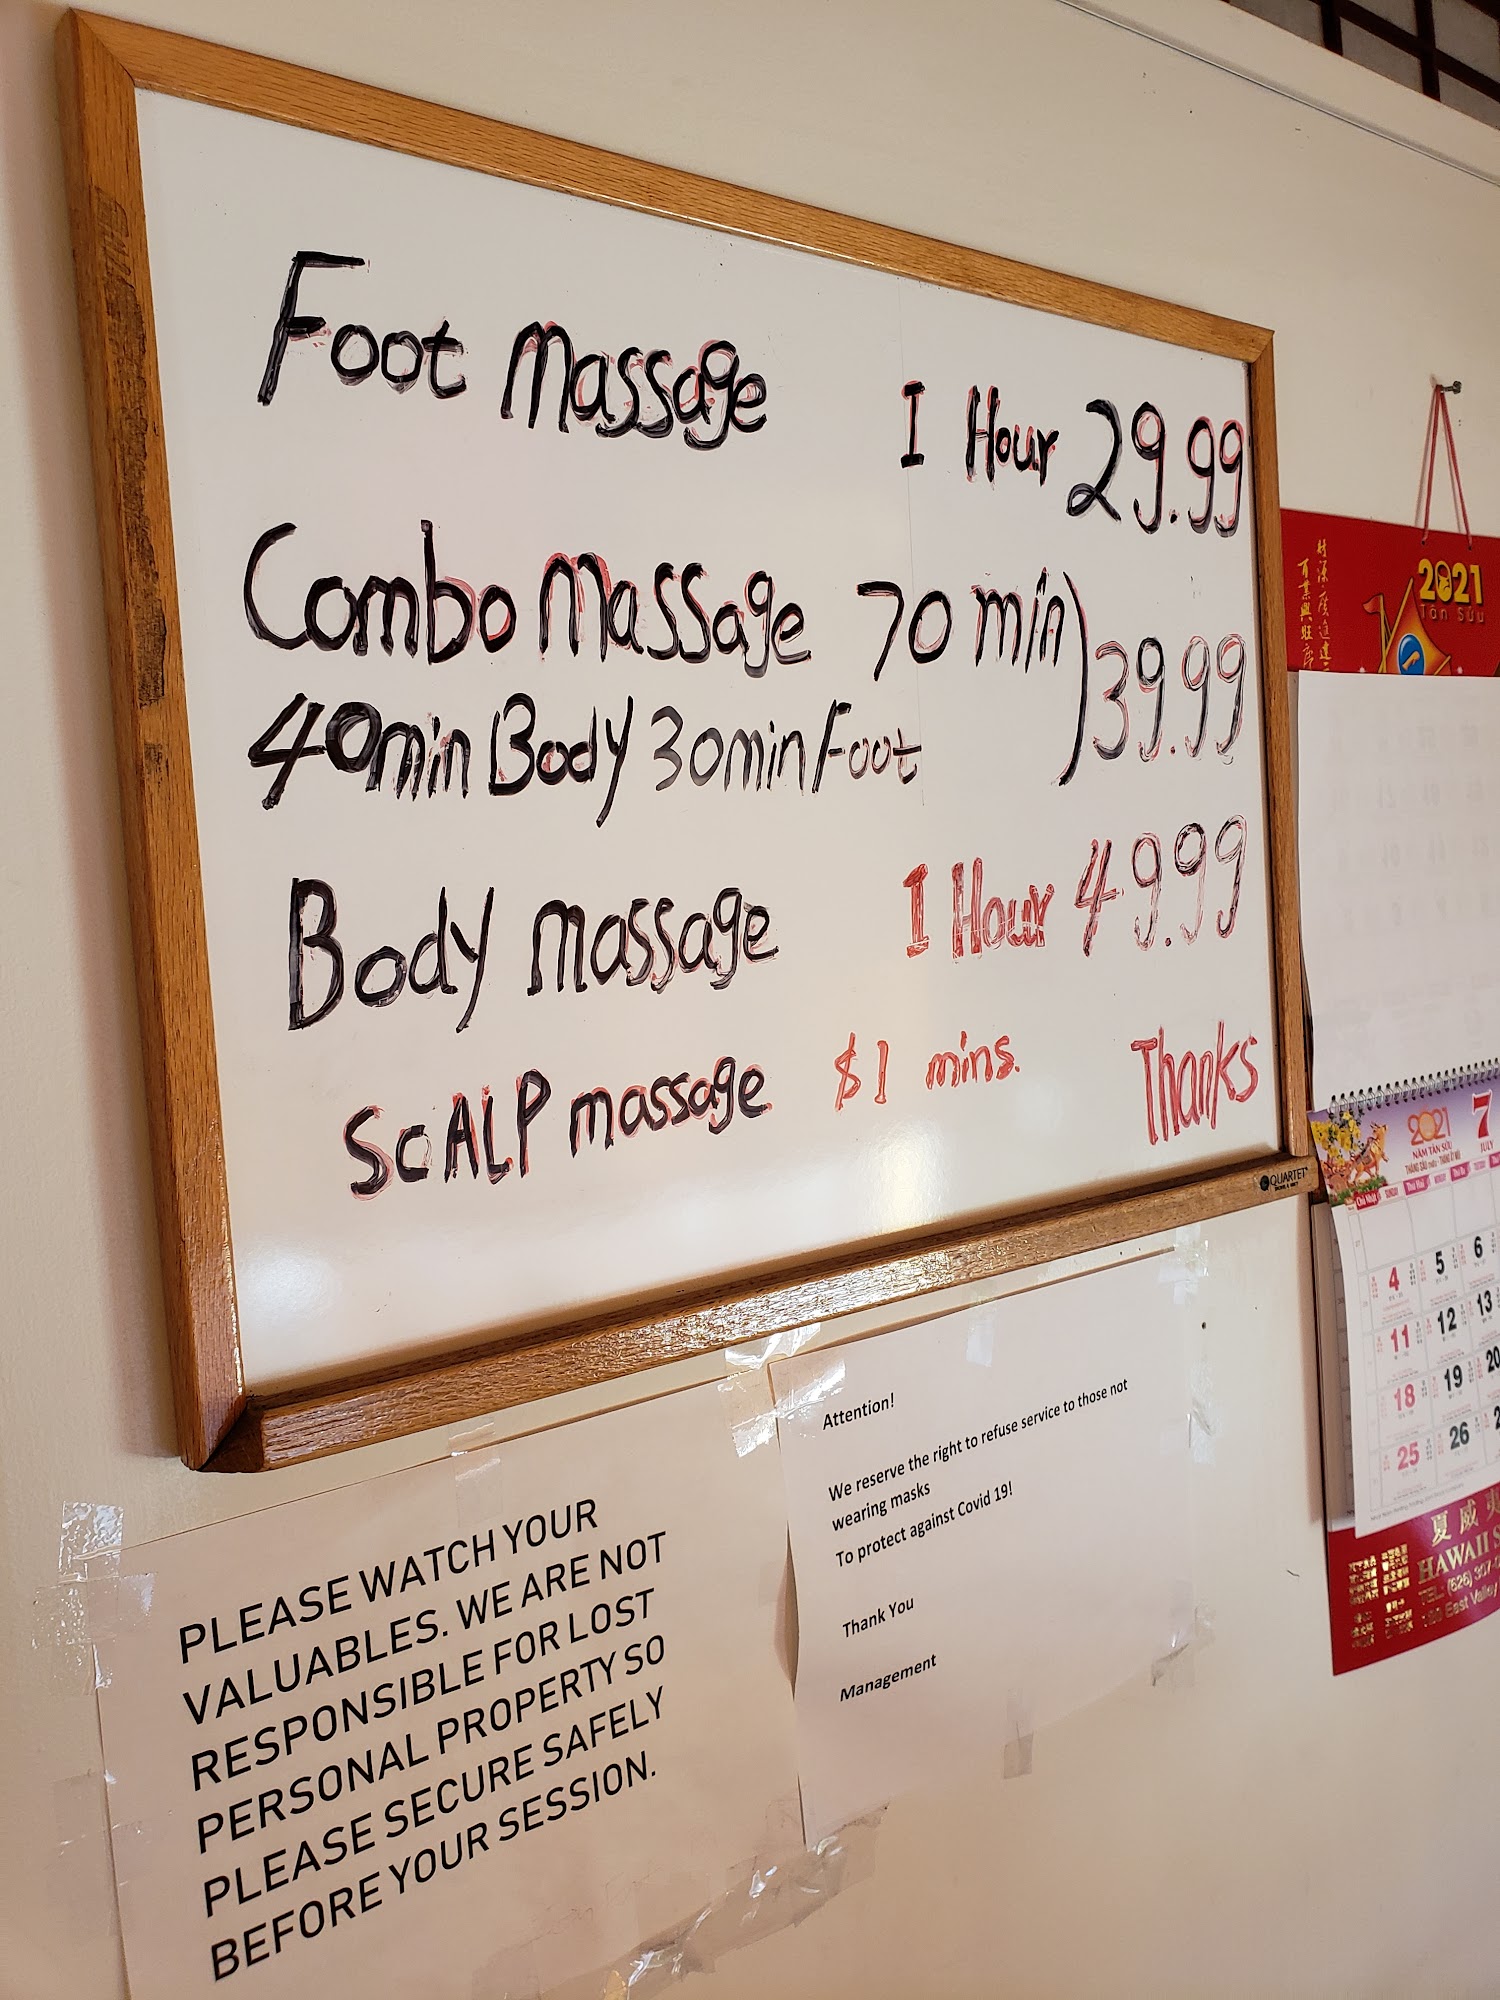 Foot Massage 1 Hour 29.99
Combo Massage 70 min) 39.99
40min Body 30min Foot
Body massage 1 Hour 49.99
ScALP massage $1 mins. Thanks
QUARTET
PLEASE WATCH YOUR
VALUABLES. WE ARE NOT
RESPONSIBLE FOR LOST
PERSONAL PROPERTY SO
PLEASE SECURE SAFELY
BEFORE YOUR SESSION.
Attention!
We reserve the right to refuse service to those not
wearing masks
To protect against Covid 19!
Thank You
Management
2021
Tân Sửu
2021 7
NĂM TÂN SỬU JULY
Chủ Nhật SUNDAY Thứ Hai MONDAY Thứ Ba
4 5 6
11 12 13
18 19 20
25 26
夏威夷
HAWAII
TEL: (626) 307
East Valley